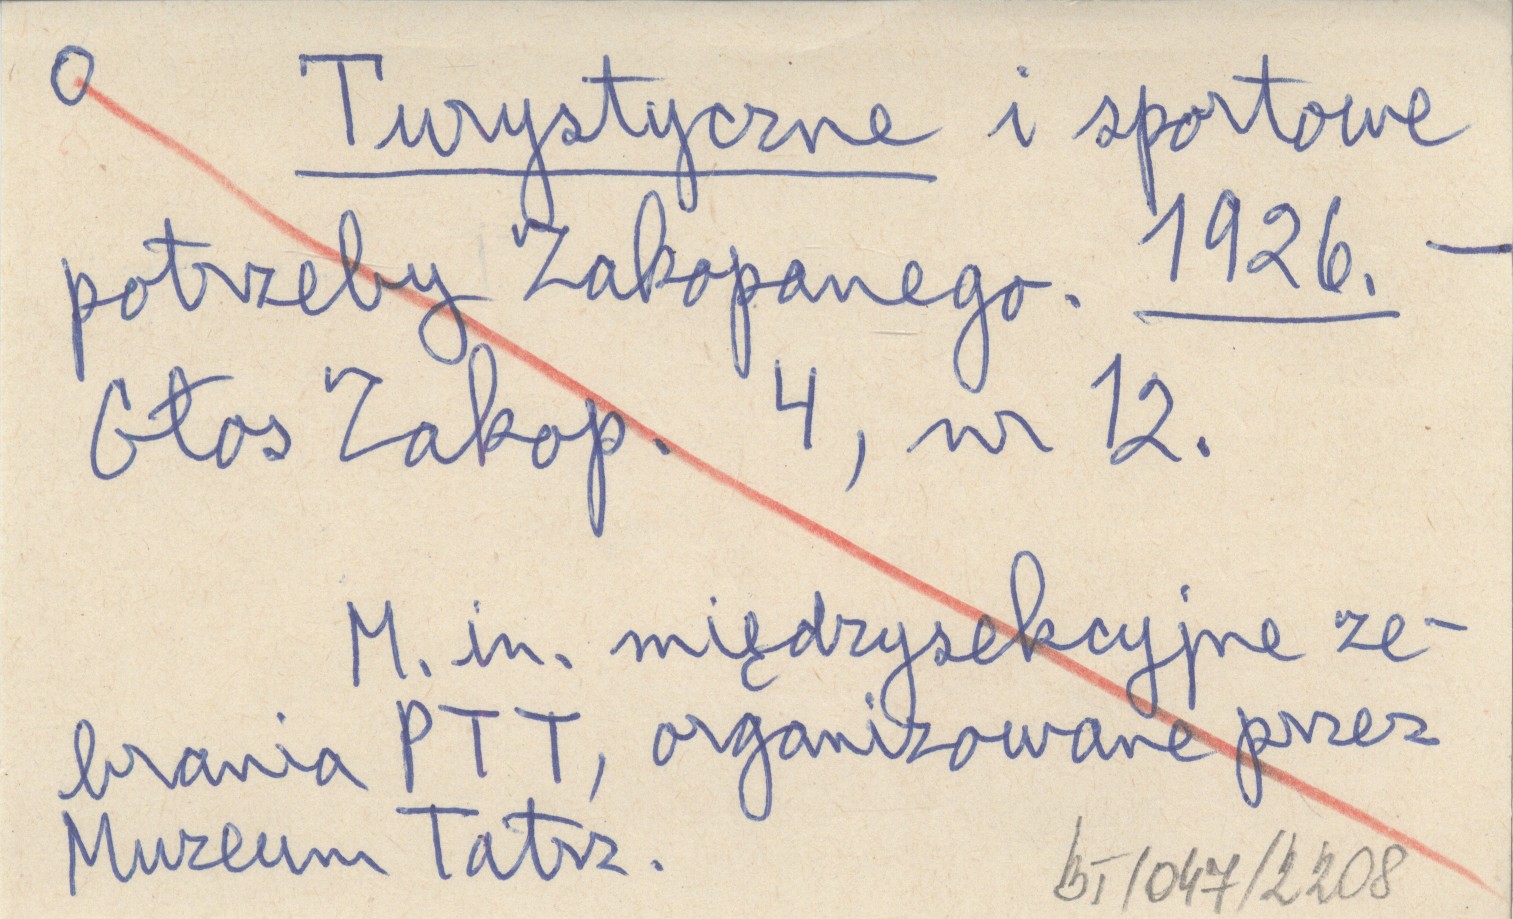 O Turystyczne i sportowe
potrzeby Zakopanego. 1926. —
Głos Zakop. 4, nr 12.
M. in. międzysekcyjne ze-
brania PTT, organizowane przez
Muzeum Tatrz.
BI/047/2208